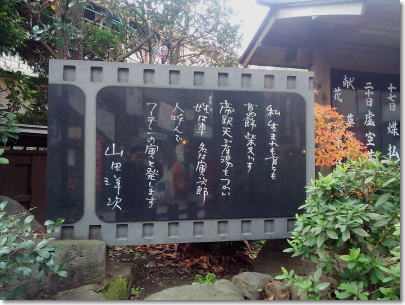 煤払
虚空
献花
私生まれも育ちも
葛飾柴又です
帝釈天で産湯をつかい
姓は車 名は寅次郎
人呼んで
フーテンの寅と発します
山田洋次